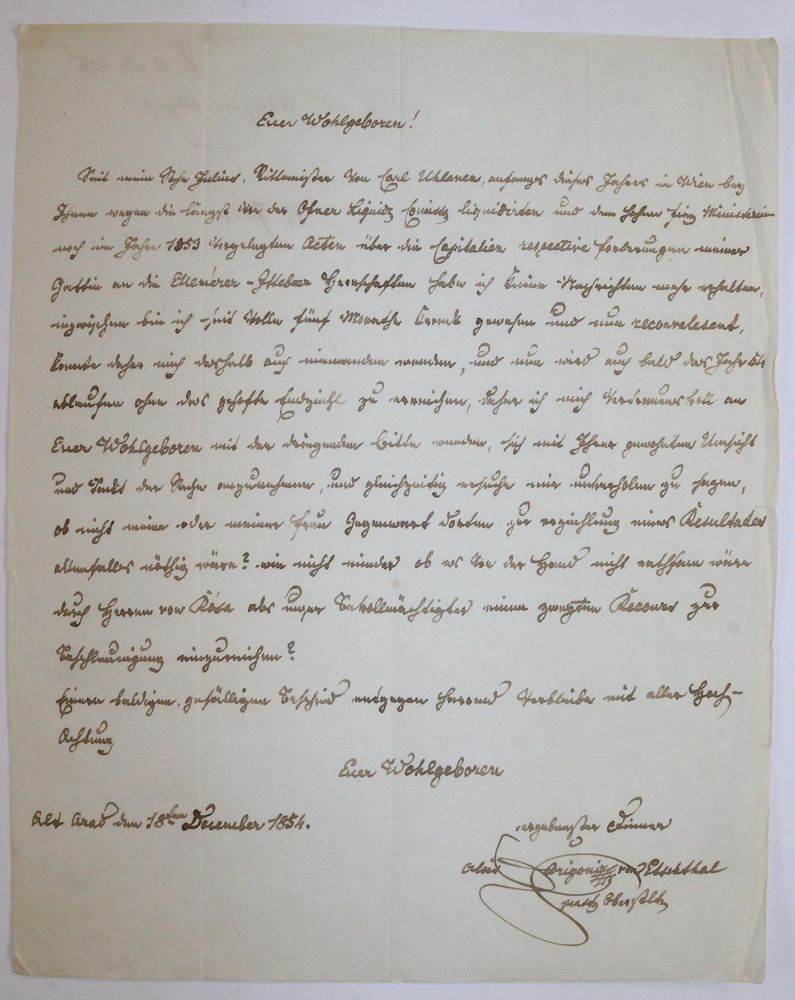 Euer Wohlgeboren!
Seit mein Sohn Julius, Rittmeister von Carl Uhlanen, anfangs dieses Jahres in Wien bey
Ihnen wegen die längst von der Ofner Liquidg liquidirten und dem hohen Finz Ministerium
noch im Jahre 1853 vorgelegten Acten über die Capitalien respective Forderungen meiner
Gattin an die Elemérer - Ittebeer Herrschaften habe ich keine Nachrichten mehr erhalten,
inzwischen bin ich seit volle fünf Monathe krank gewesen und nun reconvalesent,
konnte daher mich deshalb auf niemanden wenden, und nun wird auch bald das Jahr 54
ablaufen ohne das gehofte Endziehl zu erreichen, daher ich mich vertrauensvoll an
Euer Wohlgeboren mit der dringenden Bitte wende, sich mit Ihrer gewohnten Umsicht
und Takt der Sache anzunehmen, und gleichzeitig ersuche mir unverholen zu sagen,
ob nicht meine oder meiner Frau Gegenwart dorten zur erziehlung eines Resultates
allenfalls nöthig wäre? wie nicht minder ob es vor der Hand nicht rathsam wäre
durch Herrn von Rósa als unser Bevollmächtigter einen zweyten Recours zur
Beschleunigung einzureichen?
Einen baldigen gefälligen Bescheid entgegen harrend verbleibe mit aller Hoch-
Achtung
Euer Wohlgeboren
Alt Arad den 18ten December 1854.
ergebenster Diener
Alois Origonis von Etschthal
Oberstlt